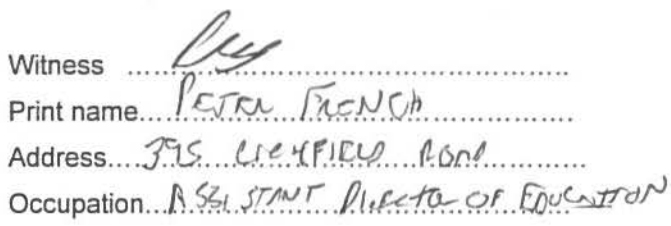 Witness
Print name PETER FRENCH
Address 395 LICHFIELD ROAD
Occupation ASSISTANT DIRECTOR OF EDUCATION